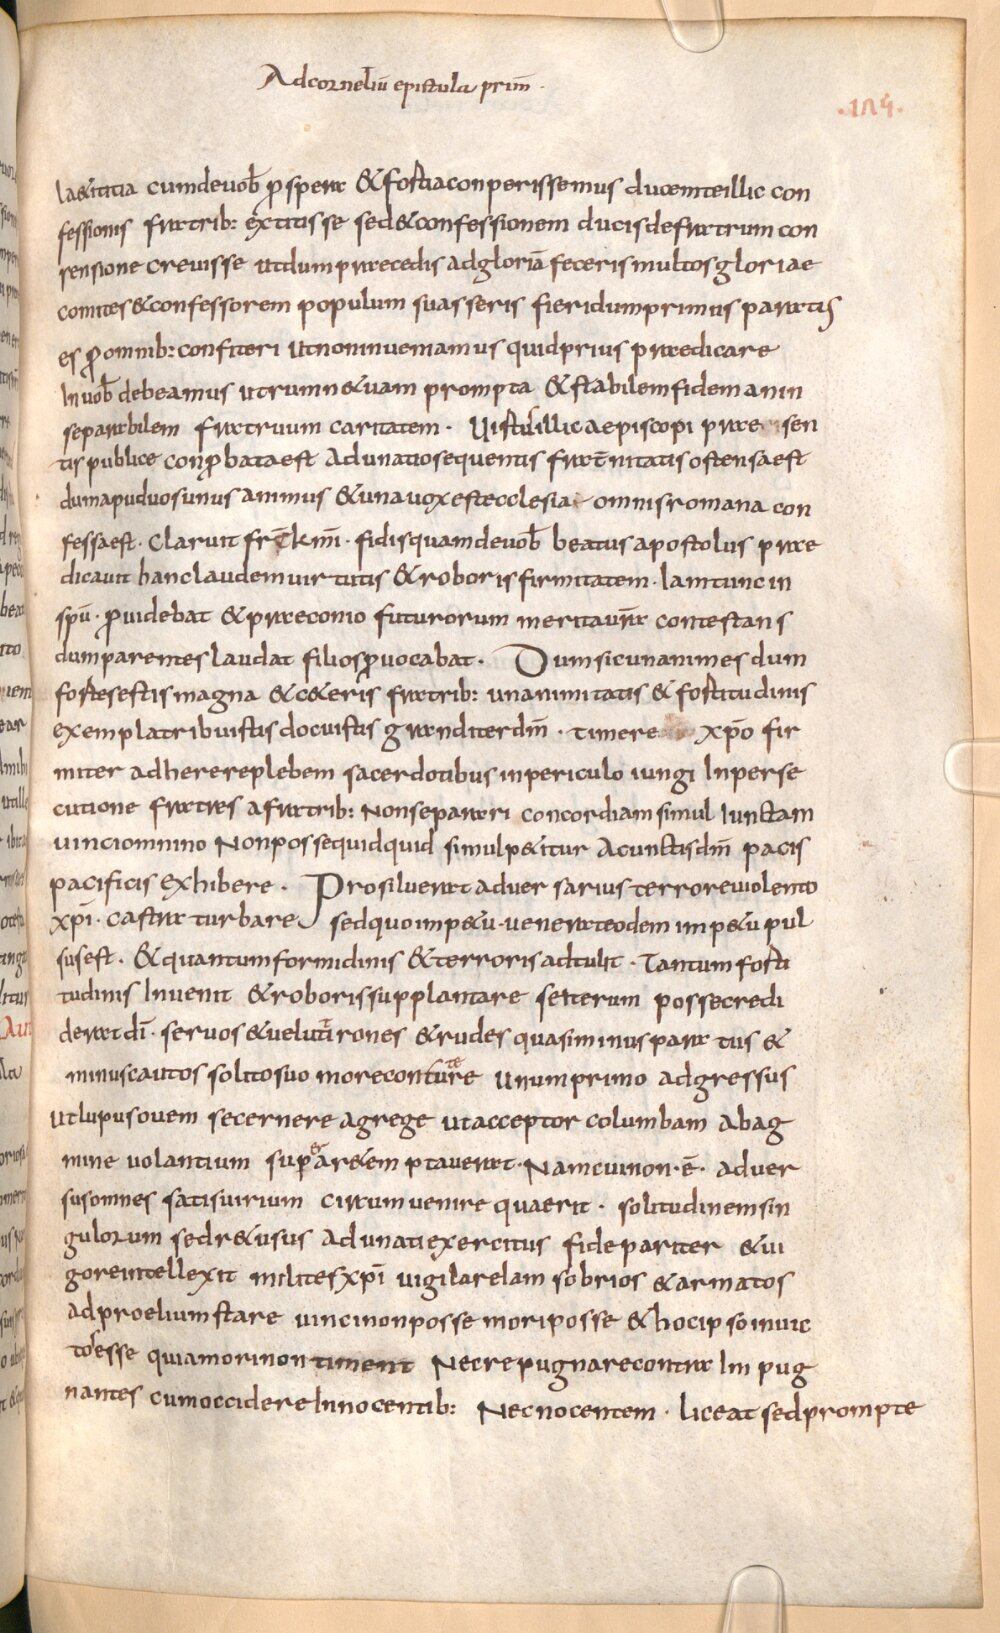 Ad corneliū epistula prim̄
.124.
laetitia cum de uob̄ ꝓspera & fortia conperissemus ducem te illic con
fessionis fratrib: extitisse sed & confessionem ducis de fratrum con
sensione creuisse ut dum praecedis ad gloriā feceris multos gloriae
comites & confessorem populum suasseris fieri dum primus paratus
es ꝓ omnib: confiteri ut non inueniamus quid prius praedicare
In uob̄ debeamus utrumne uam prompta & stabilem fidem an in
separabilem fratruum caritatem. Uirtus illic aepiscopi prae sen
tis publice conꝓbata est adunatio sequentis frat̄nitatis ostensa est
dum apud uos unus animus & una uox est ecclesia omnis romana con
fessa est. Claruit fr̄ k̄m̄. fidis quam de uob̄ beatus apostolus prae
dicauit hanc laudem uirtutis & roboris firmitatem. Iam tunc in
sp̄u. ꝓuidebat & praeconio futurorum merita ur̄a contestans
dum parentes laudat filios ꝓuocabat. Dum sic unanimes dum
fortes estis magna & ceteris fratrib: unanimitatis & fortitudinis
exempla tribuistis docuistis granditer dn̄m. timere xp̄o fir
miter adherere plebem sacerdotibus in periculo iungi In perse
cutione fratres a fratrib: Non separari concordiam simul Iunctam
uinci omnino Non posse quidquid simul petitur A cunctis dn̄m pacis
pacificis exhibere. Prosiluerat aduersarius terrore uiolento
xp̄i. castra turbare sed quo impetu. uenerat eodem impetu pul
sus est. & quantum formidinis & terroris adtulit. Tantum forti
tudinis Inuenit & roboris supplantare se iterum posse credi
derat dī. seruos & uelut tirones & rudes quasi minus paratus &
minus cautos solito suo more concutere Unum primo adgressus
Ut lupus ouem secernere a grege ut acceptor columbam ab ag
mine uolantium superare temptauerat. Nam cui non. ē. aduer
sus omnes satis uirium circumuenire quaerit. solitudinem sin
gulorum sed retusus adunati exercitus fide pariter & ui
gore intellexit milites xp̄i uigilare Iam sobrios & armatos
ad proelium stare uinci non posse mori posse & hoc ipso inuic
tos esse quia mori non timent Nec repugnare contra Impug
nantes cum occidere Innocentib: Nec nocentem. liceat sed prompte